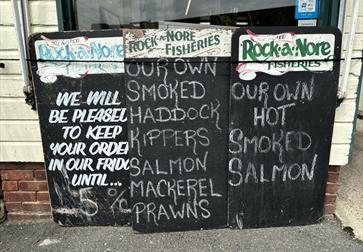 Rock-a-Nore
FISHERIES
WE WILL
BE PLEASED
TO KEEP
YOUR ORDER
IN OUR FRIDGE
UNTIL...
5
Rock-a-Nore
FISHERIES
OUR OWN
SMOKED
HADDOCK
KIPPERS
SALMON
MACKEREL
PRAWNS
Rock-a-Nore
FISHERIES
OUR OWN
HOT
SMOKED
SALMON